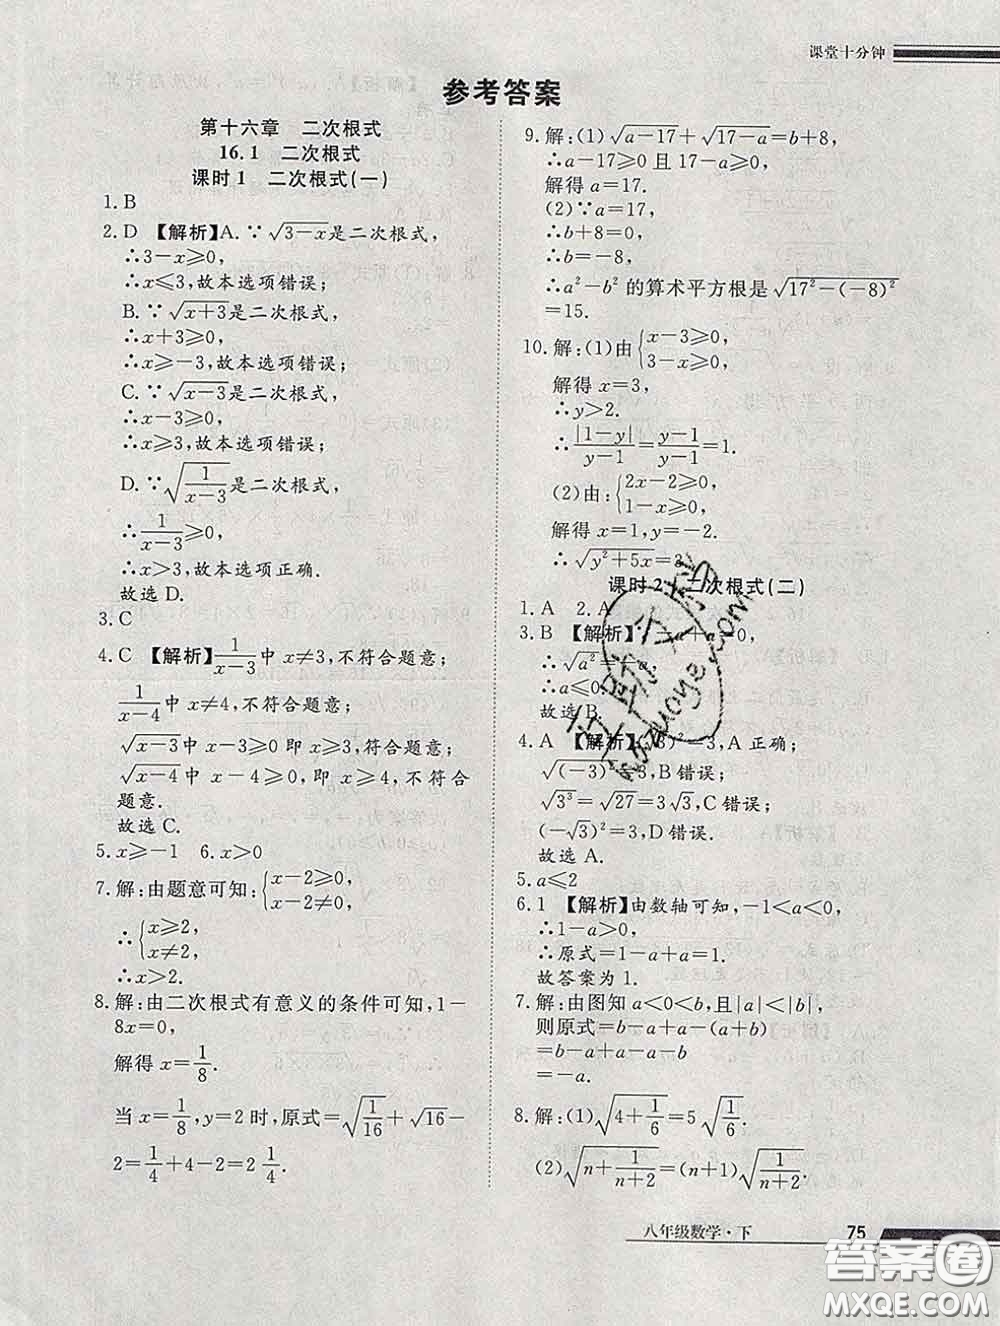 课堂十分钟
参考答案
第十六章 二次根式
16.1 二次根式
课时1 二次根式(一)
1. B
2. D 【解析】A. ∵√(3-x)是二次根式,
∴3-x⩾0,
∴x⩽3,故本选项错误;
B. ∵√(x+3)是二次根式,
∴x+3⩾0,
∴x⩾-3,故本选项错误;
C. ∵√(x-3)是二次根式,
∴x-3⩾0,
∴x⩾3,故本选项错误;
D. ∵√(1/(x-3))是二次根式,
∴1/(x-3)⩾0,
∴x>3,故本选项正确.
故选 D.
3. C
4. C 【解析】1/(x-3)中 x≠3,不符合题意;
1/(x-4)中 x≠4,不符合题意;
√(x-3)中 x-3⩾0 即 x⩾3,符合题意;
√(x-4)中 x-4⩾0,即 x⩾4,不符合
题意.
故选 C.
5. x⩾-1 6. x>0
7. 解:由题意可知:{x-2⩾0, x-2≠0,
∴{x⩾2, x≠2,
∴x>2.
8. 解:由二次根式有意义的条件可知,1-
8x=0,
解得 x=1/8.
当 x=1/8,y=2 时,原式=√(1/16)+√16-
2=1/4+4-2=2 1/4.
9. 解:(1)√(a-17)+√(17-a)=b+8,
∴a-17⩾0 且 17-a⩾0,
解得 a=17.
(2)∵a=17,
∴b+8=0,
∴b=-8,
∴a²-b² 的算术平方根是√(17²-(-8)²)
=15.
10. 解:(1)由{x-3⩾0, 3-x⩾0,
解得 x=3,
∴y>2.
∴|1-y|/(y-1)=(y-1)/(y-1)=1.
(2)由:{2x-2⩾0, 1-x⩾0,
解得 x=1,y=-2.
∴√(y²+5x)=3.
课时2 二次根式(二)
1. A 2. A
3. B 【解析】∵√a²+a=0,
∴√a²=-a,
∴a⩽0
故选 B.
4. A 【解析】(√3)²=3,A 正确;
√(-3)²=3,B 错误;
√3³=√27=3√3,C 错误;
(-√3)²=3,D 错误.
故选 A.
5. a⩽2
6. 1 【解析】由数轴可知,-1<a<0,
∴1-a>0,
∴原式=1-a+a=1.
故答案为 1.
7. 解:由图知 a<0<b,且|a|<|b|,
则原式=b-a+a-(a+b)
=b-a+a-a-b
=-a.
8. 解:(1)√(4+1/6)=5√(1/6).
(2)√(n+1/(n+2))=(n+1)√(1/(n+2)).
八年级数学·下 75
答案圈
MXQE.COM